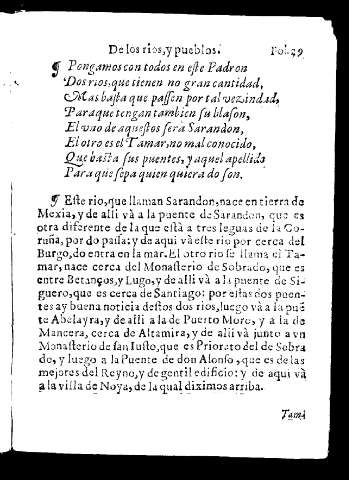 De los rios, y pueblos. Fol. 29
¶ Pongamos con todos en este Padron
Dos rios, que tienen no gran cantidad,
Mas basta que passen por tal vezindad,
Para que tengan tambien su blason,
El vno de aquestos serà Sarandon,
El otro es el Tamar, no mal conocido,
Que basta sus puentes, y aquel apellido
Para que sepa quien quiera do son.
¶ Este rio, que llaman Sarandon, nace en tierra de
Mexia, y de alli và a la puente de Sarandon, que es
otra diferente de la que està a tres leguas de la Co-
ruña, por do passa; y de aqui và este rio por cerca del
Burgo, do entra en la mar. El otro rio se llama el Ta-
mar, nace cerca del Monasterio de Sobrado, que es
entre Betanços, y Lugo, y de alli và a la puente de Si-
guero, que es cerca de Santiago: por estas dos puen-
tes ay buena noticia destos dos rios, luego và a la pué
te Abelayra, y de alli a la de Puerto Moro, y a la de
Mancera, cerca de Altamira, y de alli và junto a vn
Monasterio de san Iusto, que es Priorato del de Sobra
do, y luego a la Puente de don Alonso, que es de las
mejores del Reyno, y de gentil edificio: y de aqui và
a la villa de Noya, de la qual diximos arriba.
Tamá